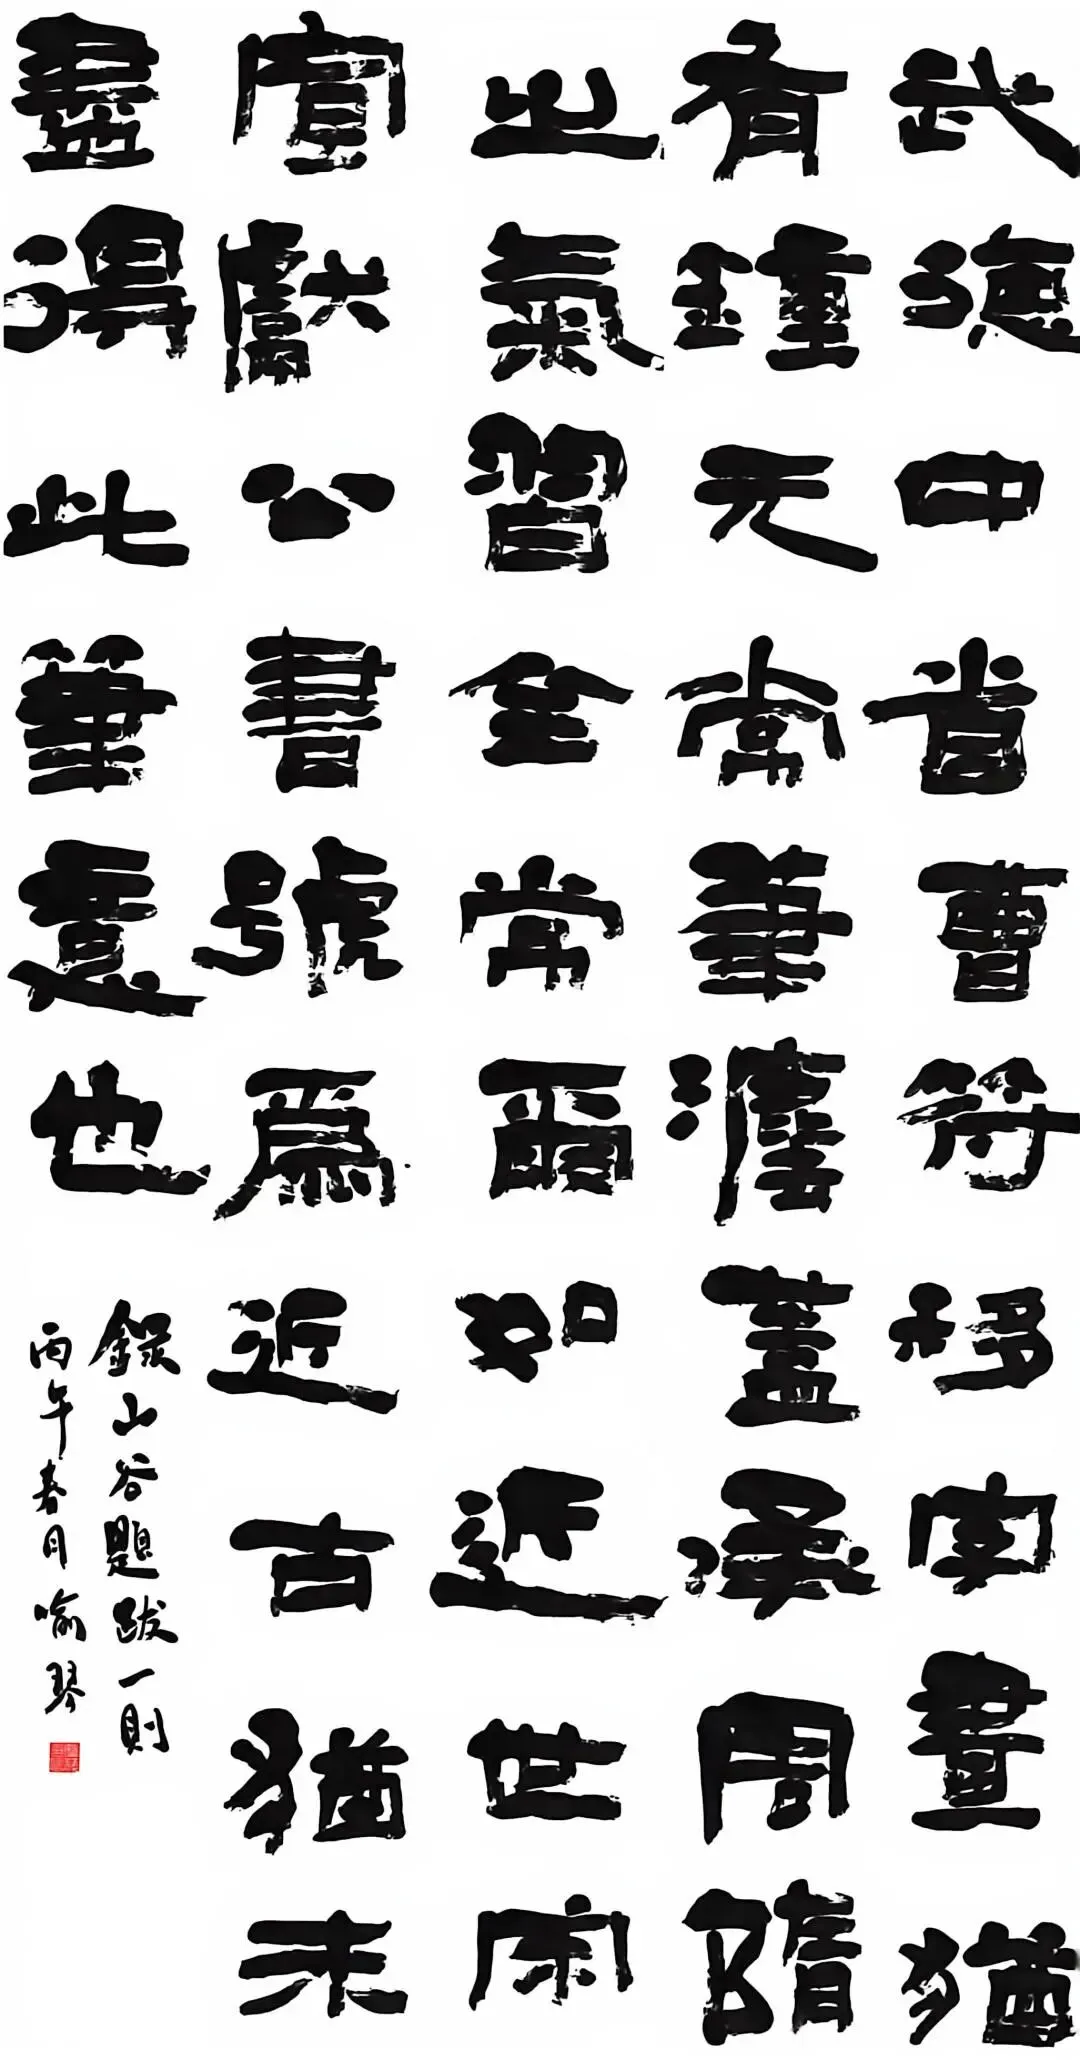 武德中省曹符移字畫猶
有鍾元常筆灋蓋承周隋
之氣習全常爾如近世宋
宣獻公書號爲近古猶未
盡得此筆意也
錄山谷題跋一則
丙午春月喻琴